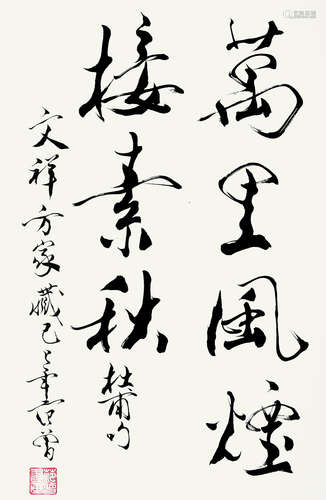 萬里風煙
接素秋 杜甫句
文祥方家藏 己巳年 范曾